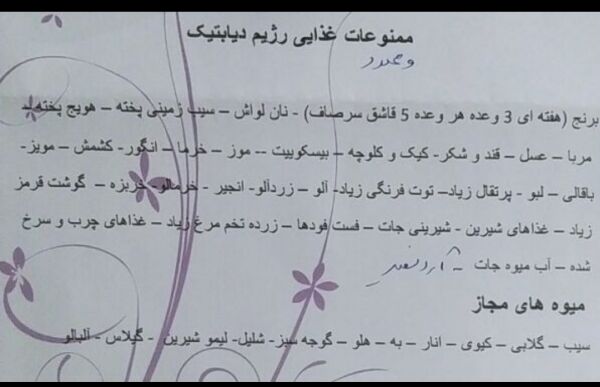 ممنوعات غذایی رژیم دیابتیک
و محدود
برنج (هفته ای 3 وعده هر وعده 5 قاشق سرصاف) - نان لواش – سیب زمینی پخته – هویج پخته –
مربا – عسل – قند و شکر- کیک و کلوچه – بیسکوییت -- موز – خرما – انگور- کشمش – مویز-
باقالی – لبو - پرتقال زیاد– توت فرنگی زیاد- آلو – زردآلو- انجیر - خرمالو- خربزه – گوشت قرمز
زیاد – غذاهای شیرین - شیرینی جات – فست فودها – زرده تخم مرغ زیاد – غذاهای چرب و سرخ
شده – آب میوه جات – آرد سفید
میوه های مجاز
سیب – گلابی – کیوی – انار – به – هلو – گوجه سبز- شلیل- لیمو شیرین - گیلاس - آلبالو